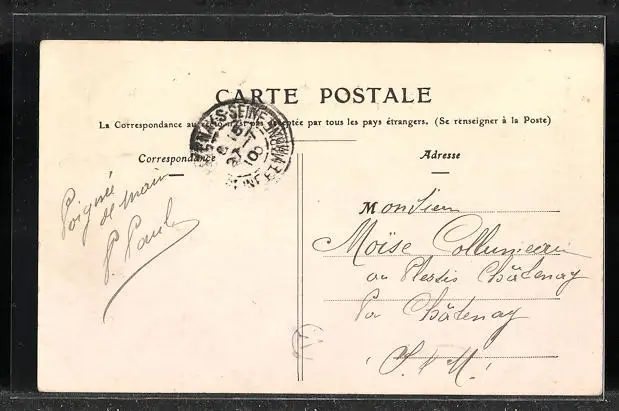 CARTE POSTALE
La Correspondance au pas acceptée par tous les pays étrangers. (Se renseigner à la Poste)
Correspondance
Adresse
Poignée
de main
P. Paul
Monsieur
Moïse
au Plessis Châtenay
Par Châtenay
S. & M.